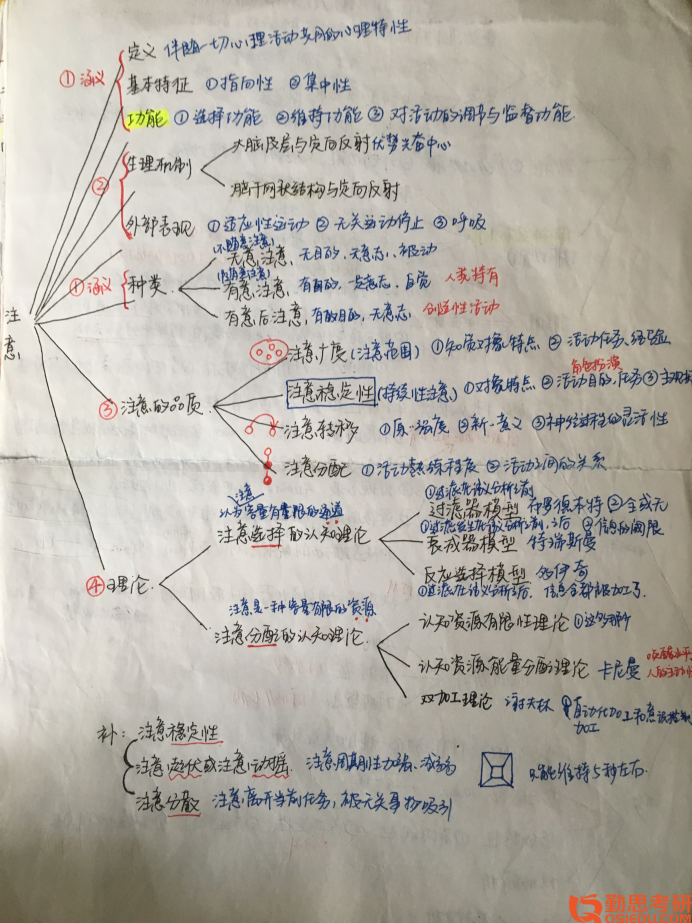 ①涵义
定义 伴随一切心理活动共同的心理特性
基本特征 ①指向性 ②集中性
功能 ①选择功能 ②维持功能 ③对活动的调节与监督功能
②
生理机制
大脑皮层与定向反射优势兴奋中心
脑干网状结构与定向反射
外部表现 ①适应性运动 ②无关运动停止 ③呼吸
①涵义 种类
(不随意注意)
无意注意, 无目的, 无意志、被动
(随意注意)
有意注意, 有目的, 意志, 自觉 人类特有
有意后注意, 有目的, 无意志 创造性活动
注意
③注意的品质
注意广度(注意范围) ①知觉对象特点 ②活动任务、经验
角色扮演
注意稳定性 (持续性注意) ①对象特点 ②活动目的、任务 ③主观
注意转移 ①原·强度 ②新·意义 ③神经过程的灵活性
注意分配 ①活动熟练程度 ②活动之间的关系
④理论
注意
认为容量有量限的通道
注意选择的认知理论
①过滤在语义分析之前
过滤器模型 布罗德本特 ②全或无
①过滤发生在语义分析前、后 ②信息的阈限
衰减器模型 特瑞斯曼
反应选择模型 多伊奇
①过滤在语义分析之后 信息全部被加工了
注意是一种容量有限的资源
注意分配的认知理论
认知资源有限性理论
认知资源能量分配理论 卡尼曼 唤醒水平
双加工理论 谢夫林 自动化加工和意识控制
加工
补: 注意稳定性
注意起伏或注意动摇 注意周期性加强、减弱 只能维持5秒左右
注意分散 注意离开当前任务, 被无关事物吸引
勤思考研
QSIEDU.COM